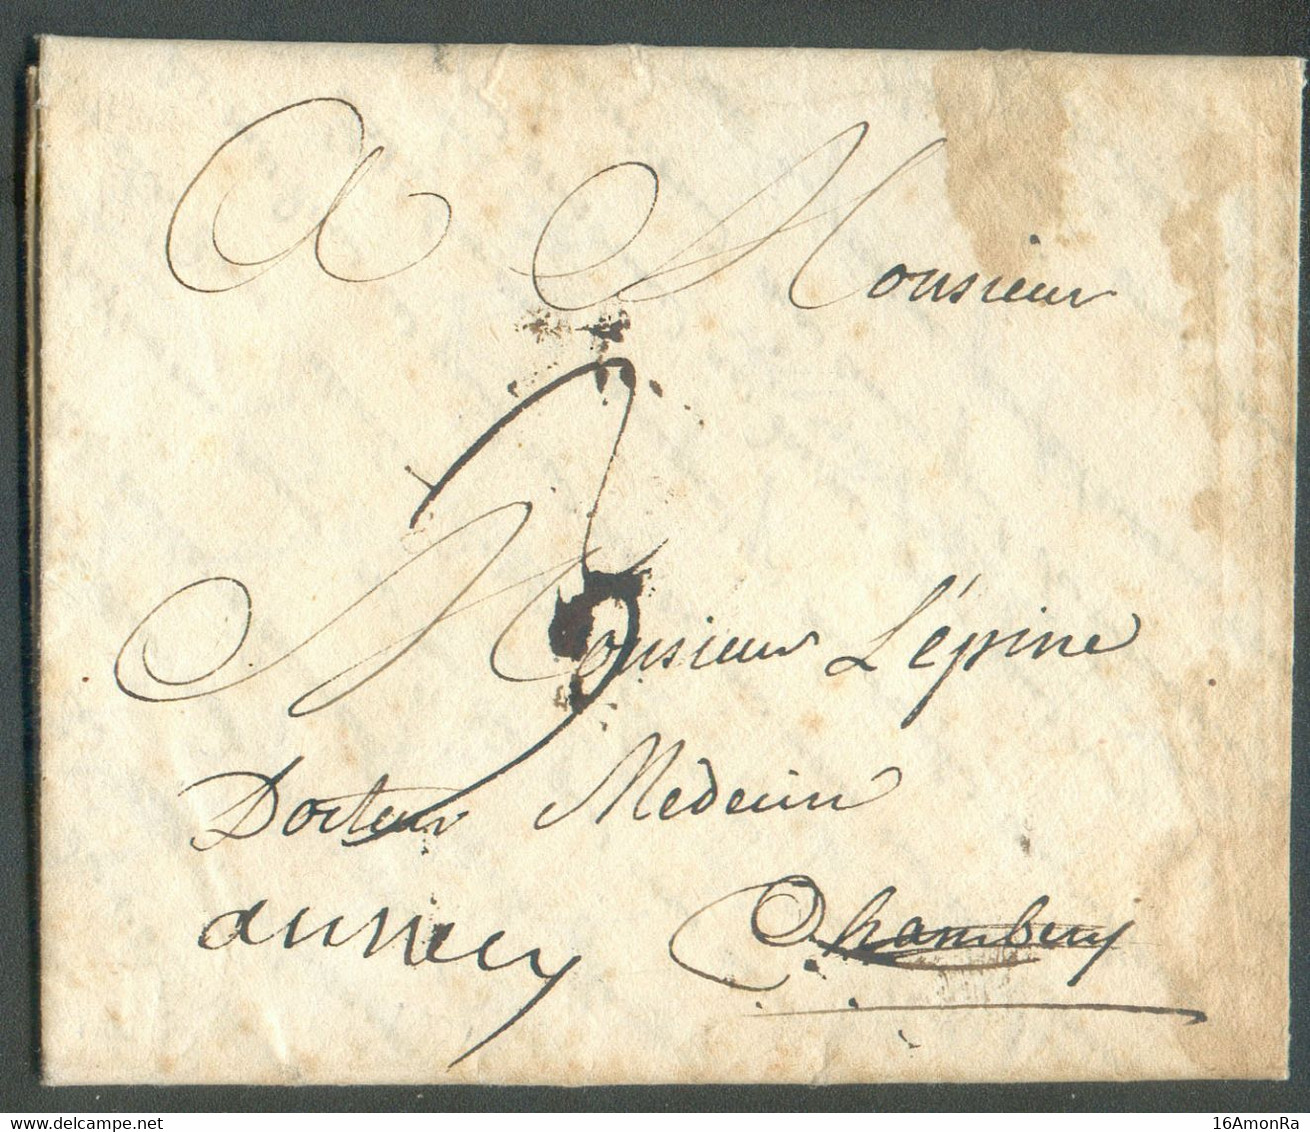 A Monsieur
Monsieur L'épine
Docteur Medecin
annecy Chambery
delcampe.net
16AmonRa